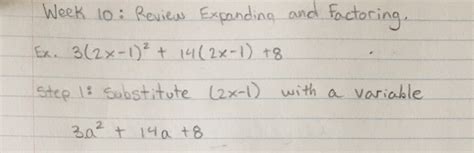 Week 10: Review Expanding and Factoring.
Ex. 3(2x-1)² + 14(2x-1) +8
Step 1: Substitute (2x-1) with a variable
3a² + 14a +8